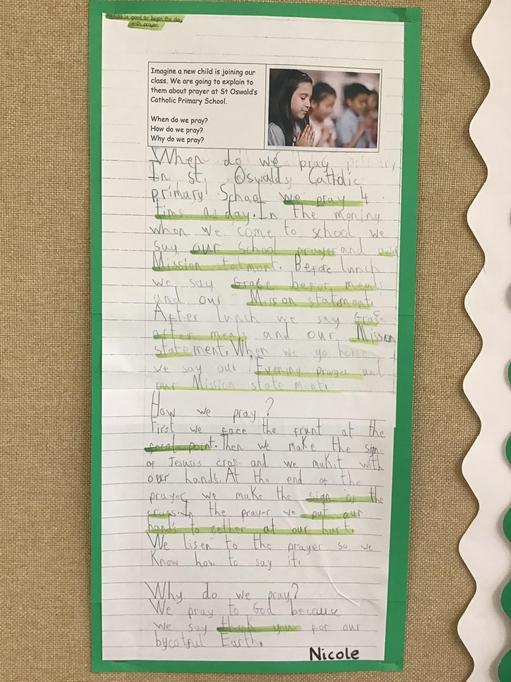 good to begin the day
with prayer.
Imagine a new child is joining our
class. We are going to explain to
them about prayer at St Oswald's
Catholic Primary School.
When do we pray?
How do we pray?
Why do we pray?
When do we pray
In st. Oswalds Catholic
primary School we pray 4
time a day. In the moning
when we come to school we
say our School prayer and our
Mission statment. Before lunch
we say Grace befor meals
and our Mission statement.
After lunch we say Grace
after meals and our Mission
statement. When we go home
we say our Evening prayer and
our Mission state ment.
How we pray?
First we face the front at the
focal point. Then we make the sign
of Jesuss cros and we makit with
our hands. At the end of the
prayer we make the sign of the
cross. In the prayer we put our
hands to gether at our hart.
We lisen to the prayer so we
Know how to say it.
Why do we pray?
We pray to God because
we say thank you for our
Earth.
Nicole